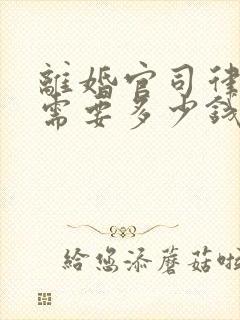 離婚官司律
需要多少錢
給您添蘑菇啦